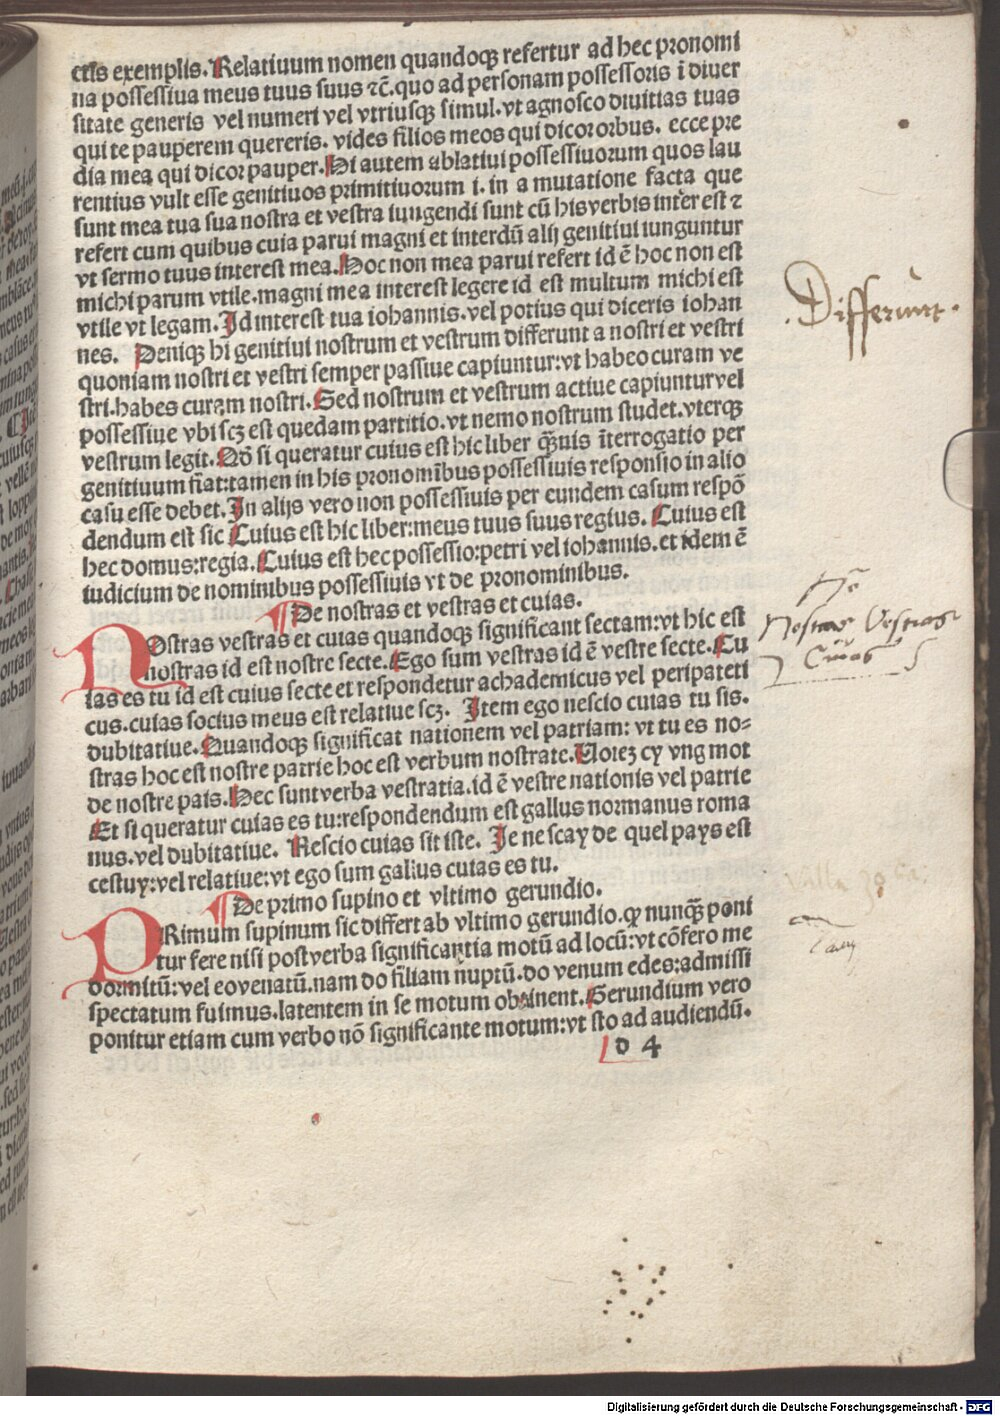 ctis exemplis. Relatiuum nomen quandoqꝫ refertur ad hec pronomi
na possessiua meus tuus suus ⁊c̄. quo ad personam possessoris ī diuer
sitate generis vel numeri vel vtriusqꝫ simul. vt agnosco diuitias tuas
qui te pauperem quereris. vides filios meos qui dicor orbus. ecce pre
dia mea qui dicor pauper. Hi autem ablatiui possessiuorum quos lau
rentius vult esse genitiuos primitiuorum i. in a mutatione facta que
sunt mea tua sua nostra et vestra iungendi sunt cū his verbis inter est ⁊
refert cum quibus cuia parui magni et interdū alij genitiui iunguntur
vt sermo tuus interest mea. Hoc non mea parui refert id ē hoc non est
michi parum vtile. magni mea interest legere id est multum michi est
vtile vt legam. Id interest tua iohannis. vel potius qui diceris iohan
nes. Deniqꝫ hi genitiui nostrum et vestrum differunt a nostri et vestri
quoniam nostri et vestri semper passiue capiuntur: vt habeo curam ve
stri. habes curam nostri. Sed nostrum et vestrum actiue capiuntur vel
possessiue vbi scꝫ est quedam partitio. vt nemo nostrum studet. vterqꝫ
vestrum legit. Qō si queratur cuius est hic liber qꝫuis īterrogatio per
genitiuum fiat: tamen in his pronomībus possessiuis responsio in alio
casu esse debet. In alijs vero non possessiuis per eundem casum respō
dendum est sic Cuius est hic liber: meus tuus suus regius. Cuius est
hec domus: regia. Cuius est hec possessio: petri vel iohannis. et idem ē
iudicium de nominibus possessiuis vt de pronominibus.
¶ De nostras et vestras et cuias.
NOstras vestras et cuias quandoqꝫ significant sectam: vt hic est
nostras id est nostre secte. Ego sum vestras id ē vestre secte. Cu
ias es tu id est cuius secte et respondetur achademicus vel peripateti
cus. cuias socius meus est relatiue scꝫ. Item ego nescio cuias tu sis.
dubitatiue. Quandoqꝫ significat nationem vel patriam: vt tu es no⸗
stras hoc est nostre patrie hoc est verbum nostrate. Uoiez cy vng mot
de nostre pais. Hec sunt verba vestratia. id ē vestre nationis vel patrie
Et si queratur cuias es tu: respondendum est gallus normanus roma
nus. vel dubitatiue. Nescio cuias sit iste. Je ne scay de quel pays est
cestuy: vel relatiue: vt ego sum gallus cuias es tu.
¶ De primo supino et vltimo gerundio.
PRimum supinum sic differt ab vltimo gerundio. qꝫ nunqꝫ poni
tur fere nisi post verba significantia motū ad locū: vt cōfero me
dormitū: vel eo venatū. nam do filiam nuptū. do venum edes: admissi
spectatum fuimus. latentem in se motum obtinent. Gerundium vero
ponitur etiam cum verbo nō significante motum: vt sto ad audiendū.
d 4
Differunt.
Nostras Vestras
Cuias
Digitalisierung gefördert durch die Deutsche Forschungsgemeinschaft - DFG